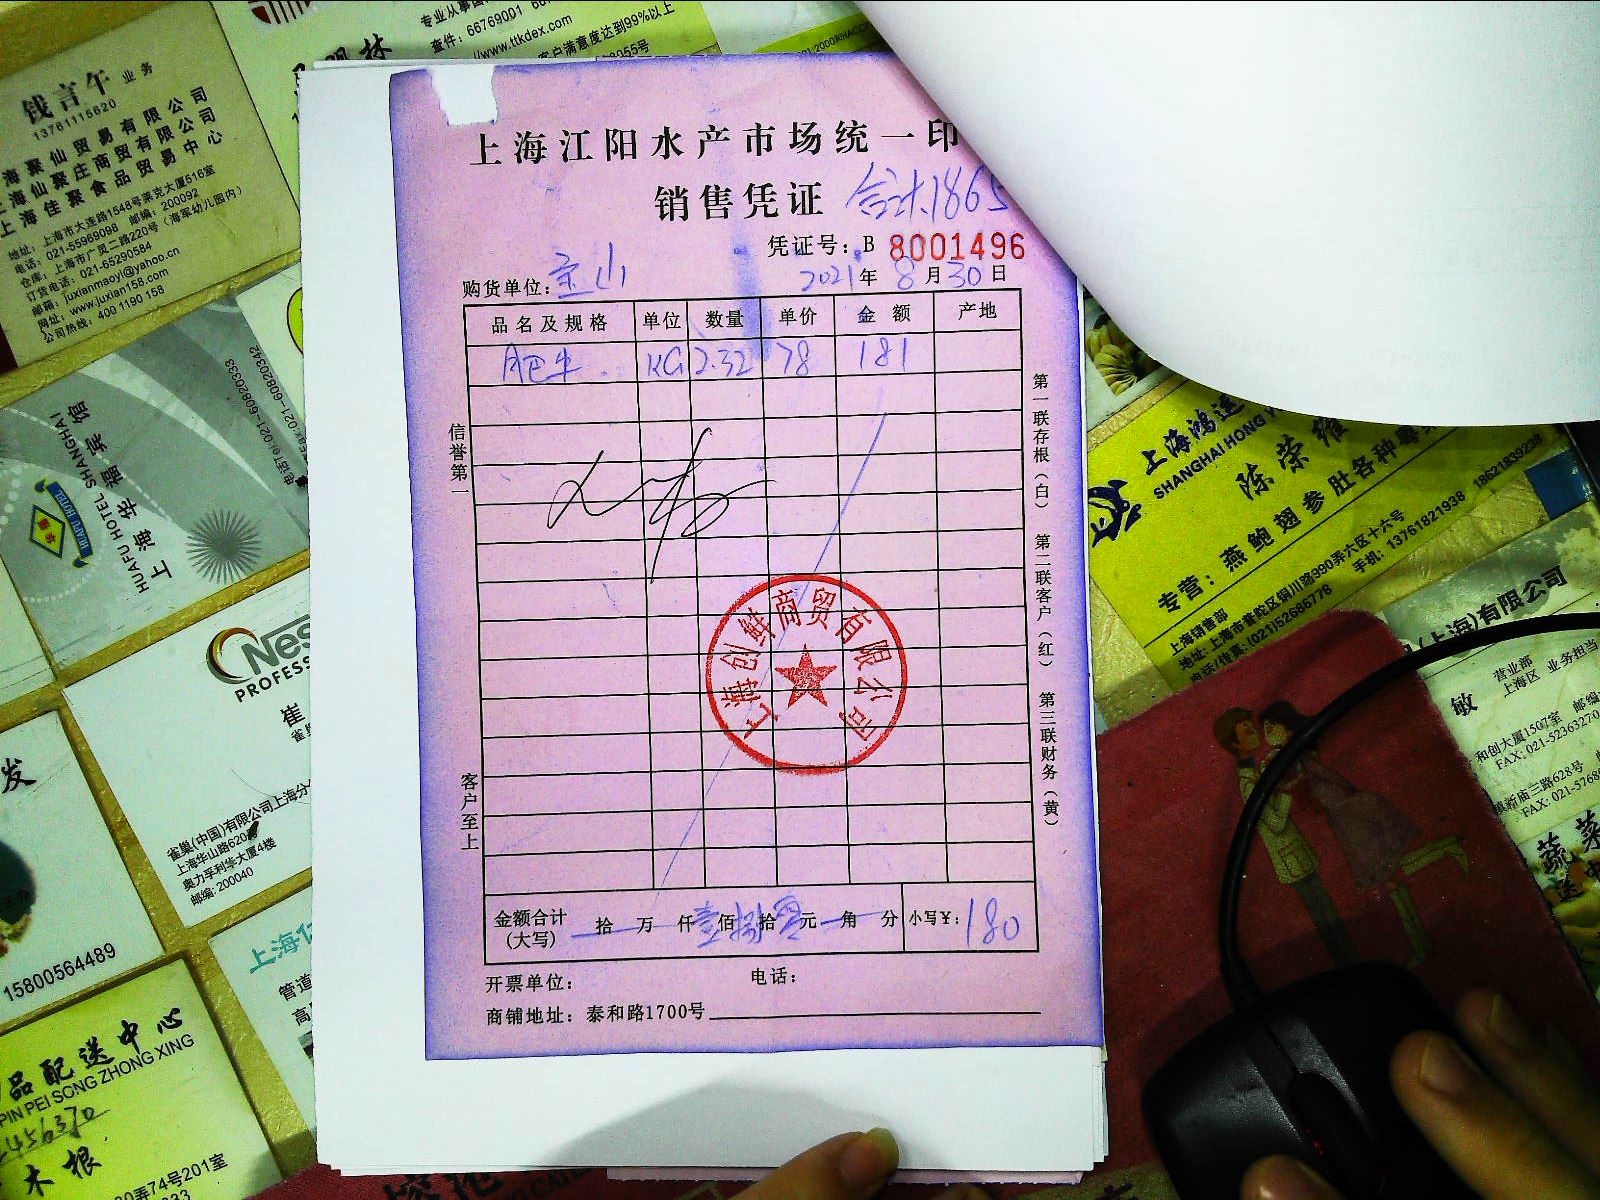 钱言午 业务
13761115620
海聚仙贸易有限公司
上海仙聚庄商贸有限公司
上海佳聚食品贸易中心
地址：上海市大连路1548号莱克大厦516室
电话：021-55969098 邮编：200092
仓库：上海市广灵二路220号（海军幼儿园内）
订货电话：021-65290584
邮箱：juxianmaoyi@yahoo.cn
网址：www.juxian158.com
公司热线：400 1190 158
专业从事国
查件：66769001
//www.ttkdex.com
客户满意度达到99%以上
上海江阳水产市场统一印
销售凭证 合计1865
凭证号：B 8001496
购货单位：宝山 2021年8月30日
品名及规格 单位 数量 单价 金额 产地
KG 2.32 78 181
信誉第一
客户至上
第一联存根（白） 第二联客户（红） 第三联财务（黄）
上海创鲜商贸有限公司
金额合计（大写） 拾 万 仟壹佰捌拾零元 角 分 小写¥：180
开票单位： 电话：
商铺地址：泰和路1700号
上海华福宾馆
HUAFU HOTEL SHANGHAI
HUAFU HOTEL
021-60820333
021-60820342
Nes
PROFESS
崔
雀巢(中国)有限公司上海分
上海华山路620
奥力孚利华大厦4楼
邮编：200040
发
15800564489
品配送中心
PIN PEI SONG ZHONG XING
木根
弄74号201室
上海
管道
上海鸿运
SHANGHAI HONG Y
陈荣雄
专营：燕鲍翅参肚各种
上海销售部
地址：上海市普陀区铜川路390弄六区十六号
电话/传真：(021)52686778 手机：13761821938 18621839238
(上海)有限公司
敏 营业部 业务担当
上海区
和创大厦1507室 邮编
FAX：021-52363270
镇新庙三路628号
FAX：021-5768
蔬菜